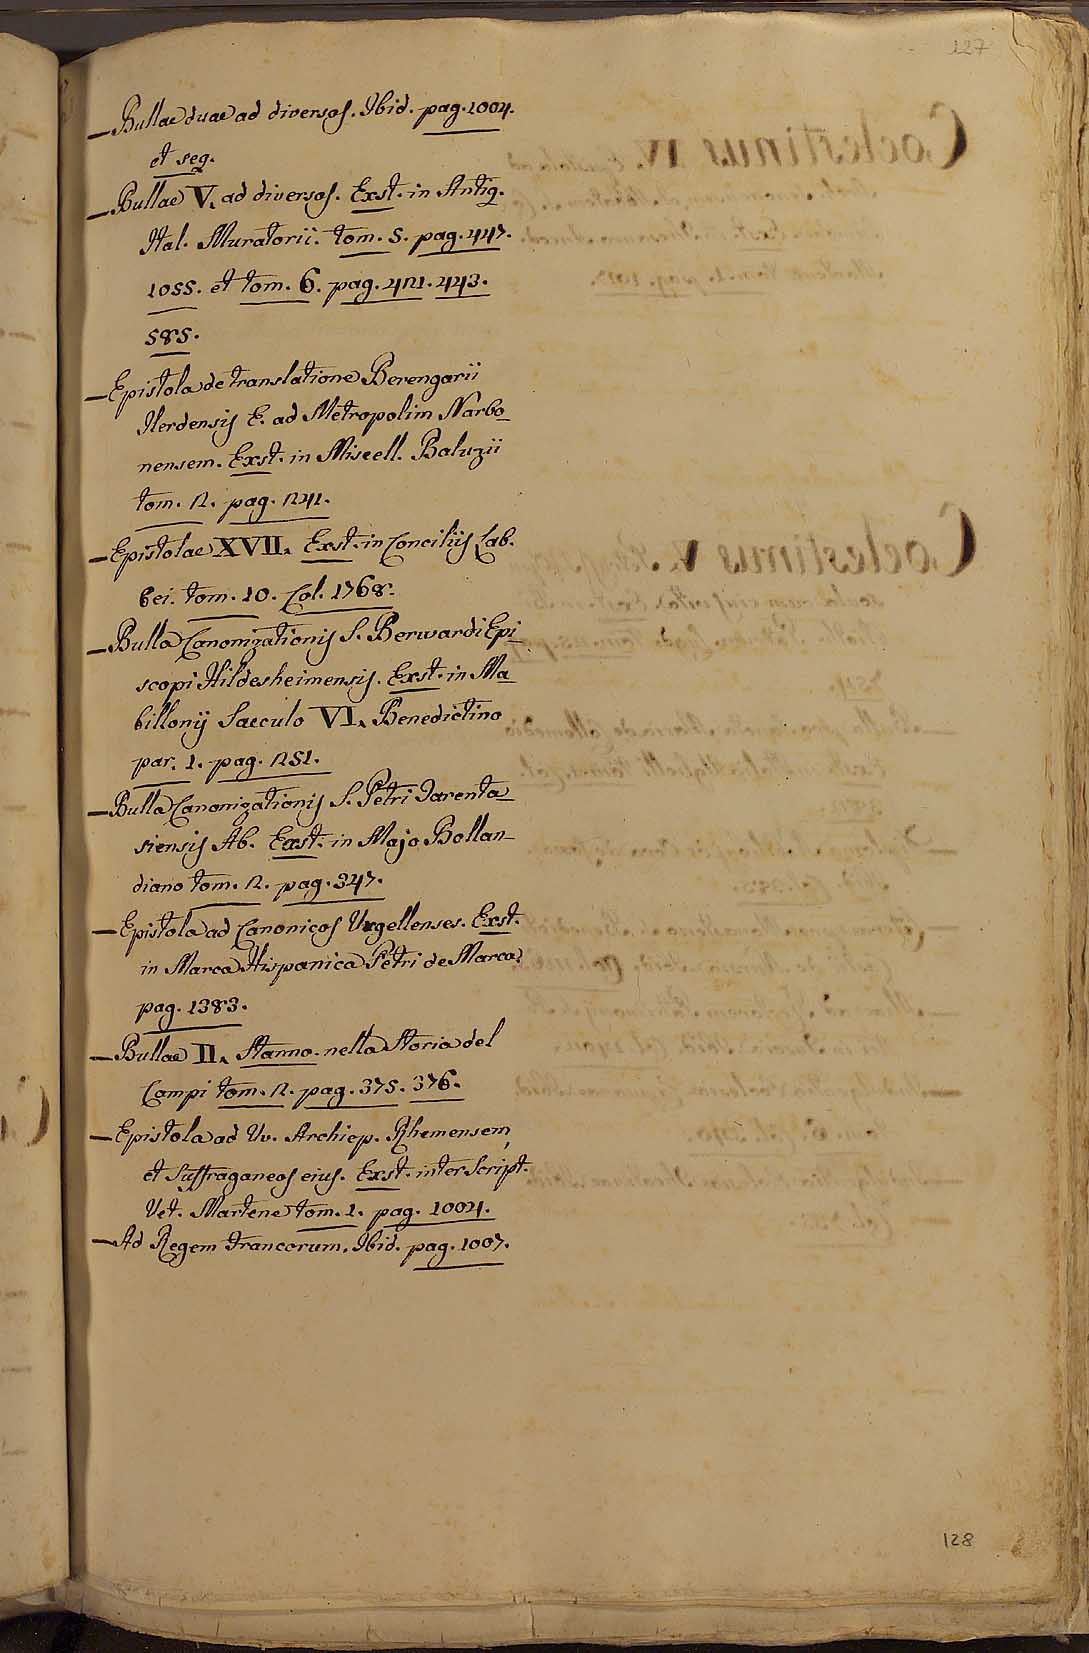 127
— Bullae duae ad diversos. Ibid. pag. 1004.
et seq.
— Bullae V. ad diversos. Exst. in Antiq.
Ital. Muratorii. tom. 5. pag. 447.
1055. et tom. 6. pag. 421. 443.
585.
— Epistola de translatione Berengarii
Ilerdensis E. ad Metropolim Narbo_
nensem. Exst. in Miscell. Baluzii
tom. 2. pag. 241.
— Epistolae XVII. Exst. in Conciliis Lab.
bei. tom. 10. Col. 1768.
— Bulla Canonizationis S. Berwardi Epi_
scopi Hildesheimensis. Exst. in Ma_
billonij Saeculo VI. Benedictino
par. 1. pag. 251.
— Bulla Canonizationis S. Petri Tarenta_
siensis Ab. Exst. in Majo Bollan_
diano tom. 2. pag. 347.
— Epistola ad Canonicos Urgellenses. Exst.
in Marca Hispanica Petri de Marca
pag. 1383.
— Bullae II. Stanno. nella Storia del
Campi tom. 2. pag. 375. 376.
— Epistola ad Uv. Archiep. Rhemensem
et Suffraganeos eius. Exst. inter Script.
Vet. Martene tom. 1. pag. 1004.
— Ad Regem Francorum. Ibid. pag. 1007.
128